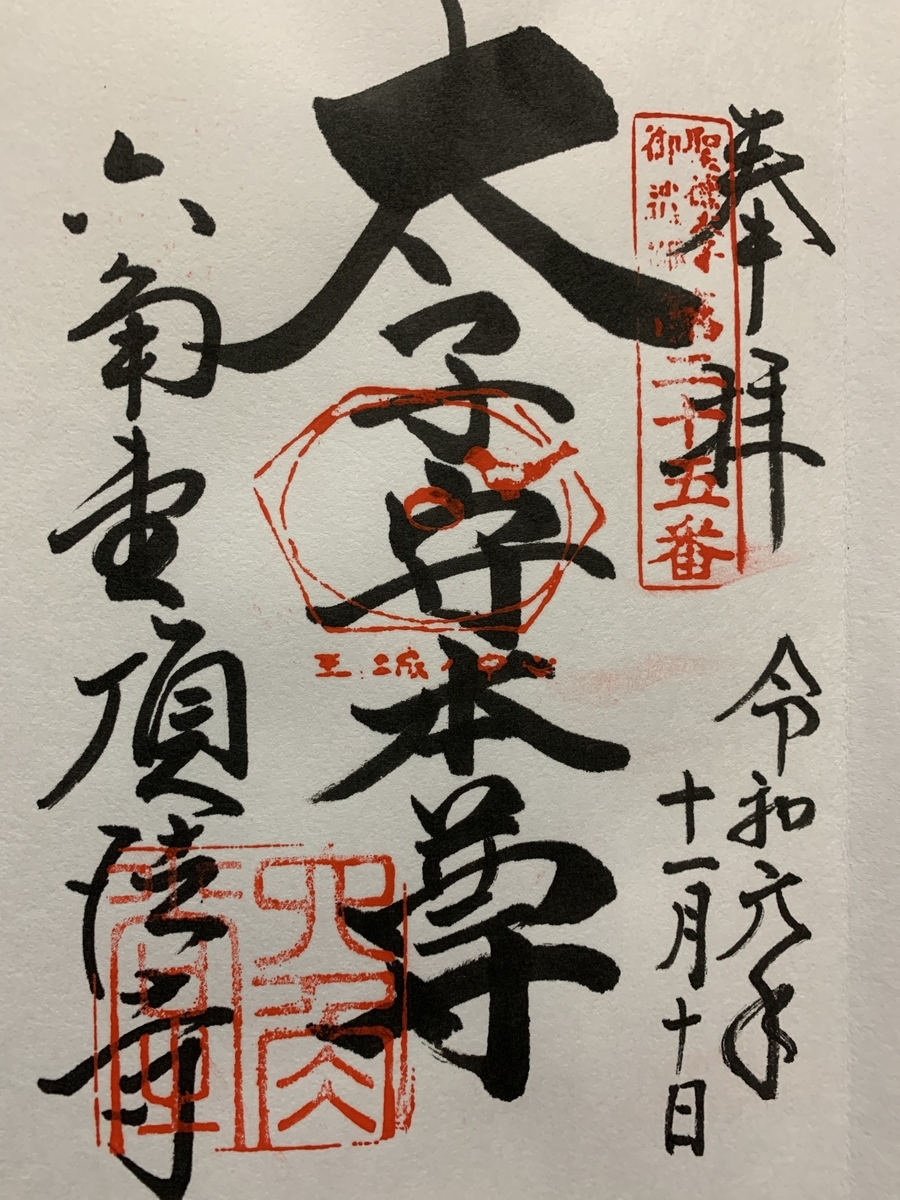 奉拝
令和元年
十一月十日
聖徳太子
御遺跡
第二十五番
太子守本尊
六角堂頂法寺